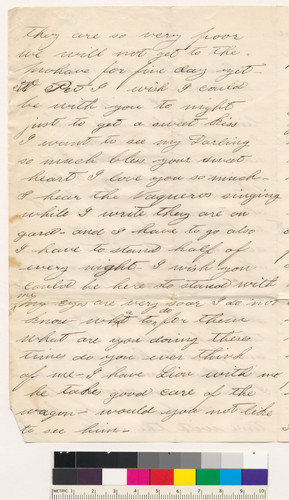 they are so very poor
we will not get to the
Mohave for five day yet
Pet I wish I could
be with you to night
just to get a sweet Kiss
I want to see my Darling
so much bless your sweet
heart I love you so much-
I hear the Vaqueros singing
while I write they are on
gard- and I have to go also
I have to stand half of
every night- I wish you
could be here to stand with
me
my eys are very soar I do not
know what to do for them
what are you doing theses
times do you ever think
of me- I have Lion with me
he take good care of the
wagon- would you not like
to see him-
METRIC 1 2 3 4 5 6 7 8 9 10